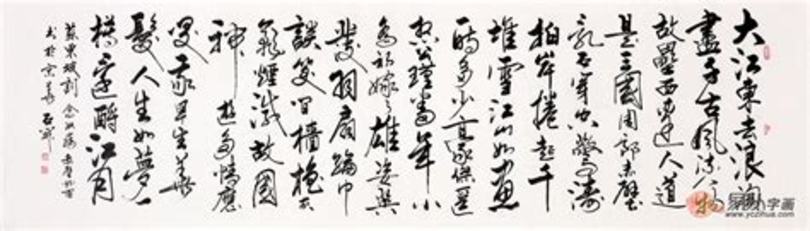 大江東去浪淘
盡千古風流人
故壘西邊人道
是三國周郎赤壁
亂石穿空驚濤
拍岸捲起千
堆雪江山如畫
時多少豪傑遥
想公瑾當年小
喬初嫁了雄姿英
發羽扇綸巾
談笑間檣櫓灰
飛煙滅故國
神遊多情應
笑我早生華
髮人生如夢一
樽還酹江月
蘇東坡詞 念奴嬌 赤壁懷古
书於京華
易从字画
www.yczihua.com